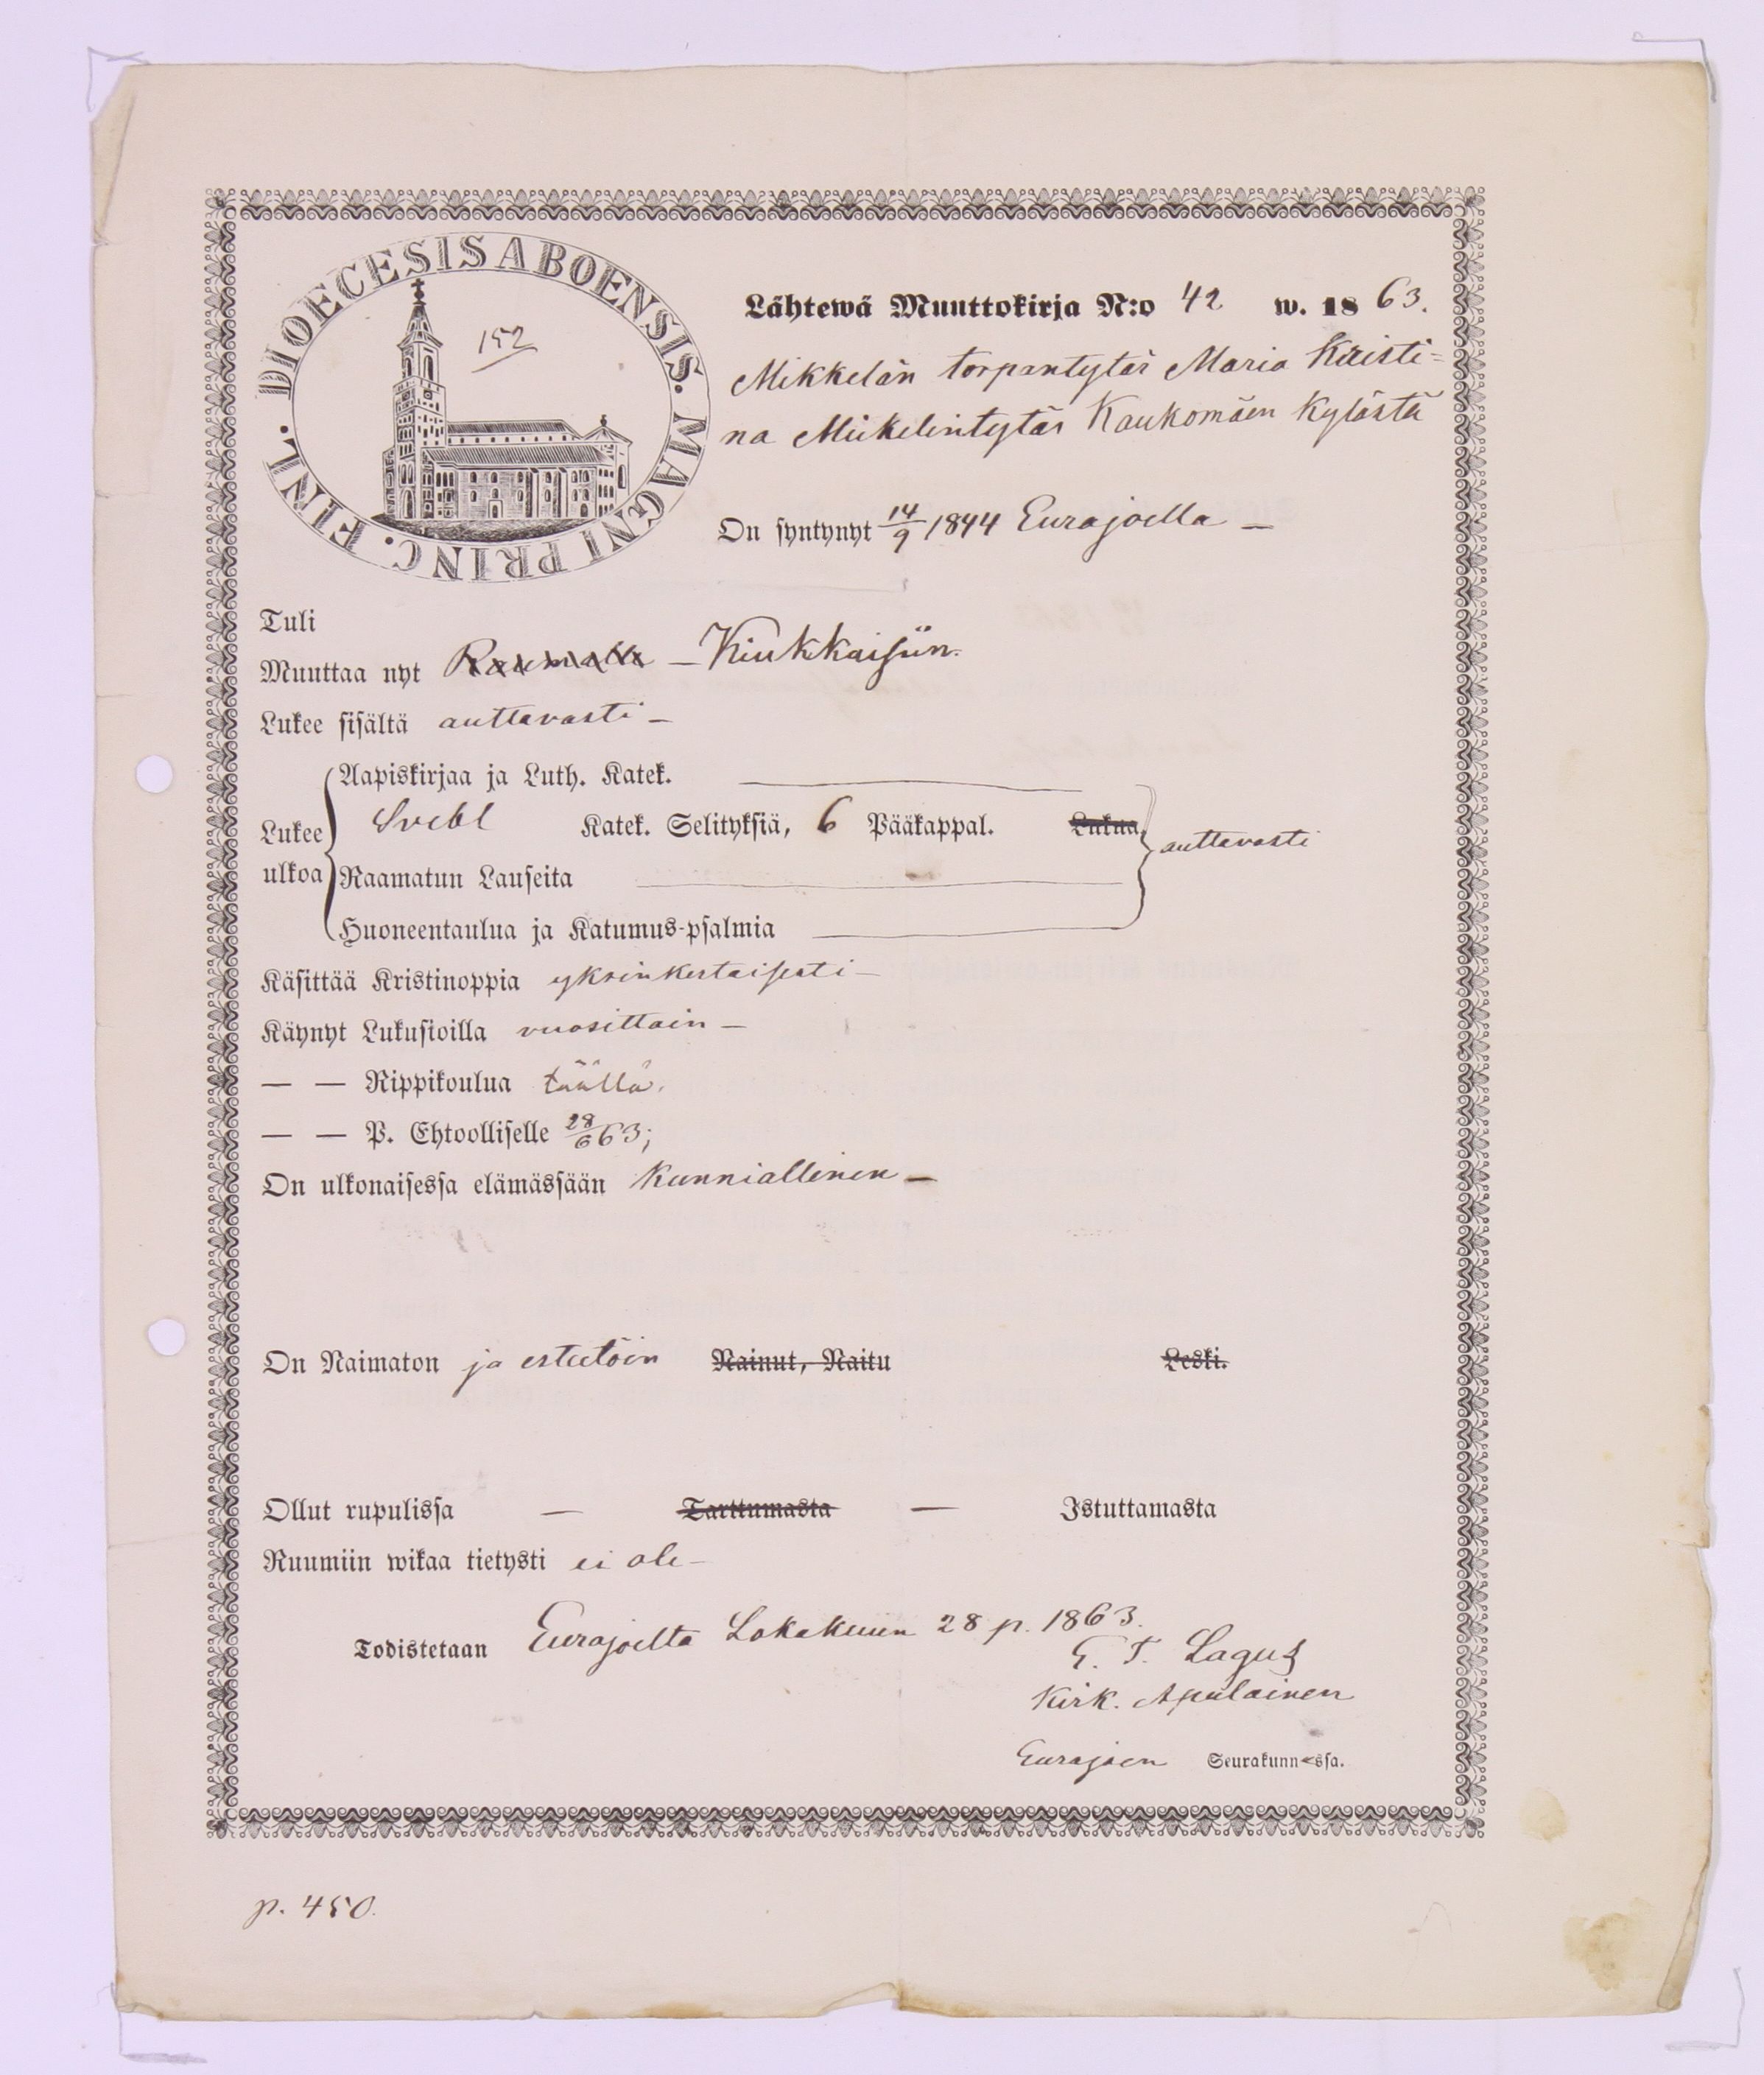 DIOECESIS ABOENSIS. MAGNI PRINC. FINL.
152
Lähtewä Muuttokirja N:o 42 w. 1863.
Mikkelän torpantytär Maria Kristi=
na Mikelintytär Kaukomäen Kylästä
On syntynyt 14/9 1844 Eurajoella —
Tuli
Muuttaa nyt Raumalle — Kiukkaisiin.
Lukee sisältä auttavasti —
Lukee ulkoa
Aapiskirjaa ja Luth. Katek.
Svebl Katek. Selityksiä, 6 Pääkappal. Lukua auttavasti
Raamatun Lauseita
Huoneentaulua ja Katumus-psalmia
Käsittää Kristinoppia yksinkertaisesti —
Käynyt Lukusioilla vuosittain —
— — Rippikoulua täällä.
— — P. Ehtoolliselle 28/6 63;
On ulkonaisessa elämässään Kunniallinen —
On Naimaton ja esteetöin Nainut, Naitu Leski.
Ollut rupulissa — Tarttumasta — Istuttamasta
Ruumiin wikaa tietysti ei ole —
Todistetaan Eurajoelta Lokakuun 28 p. 1863.
G. T. Lagus
Kirk. Apulainen
Eurajoen Seurakunnassa.
p. 450.